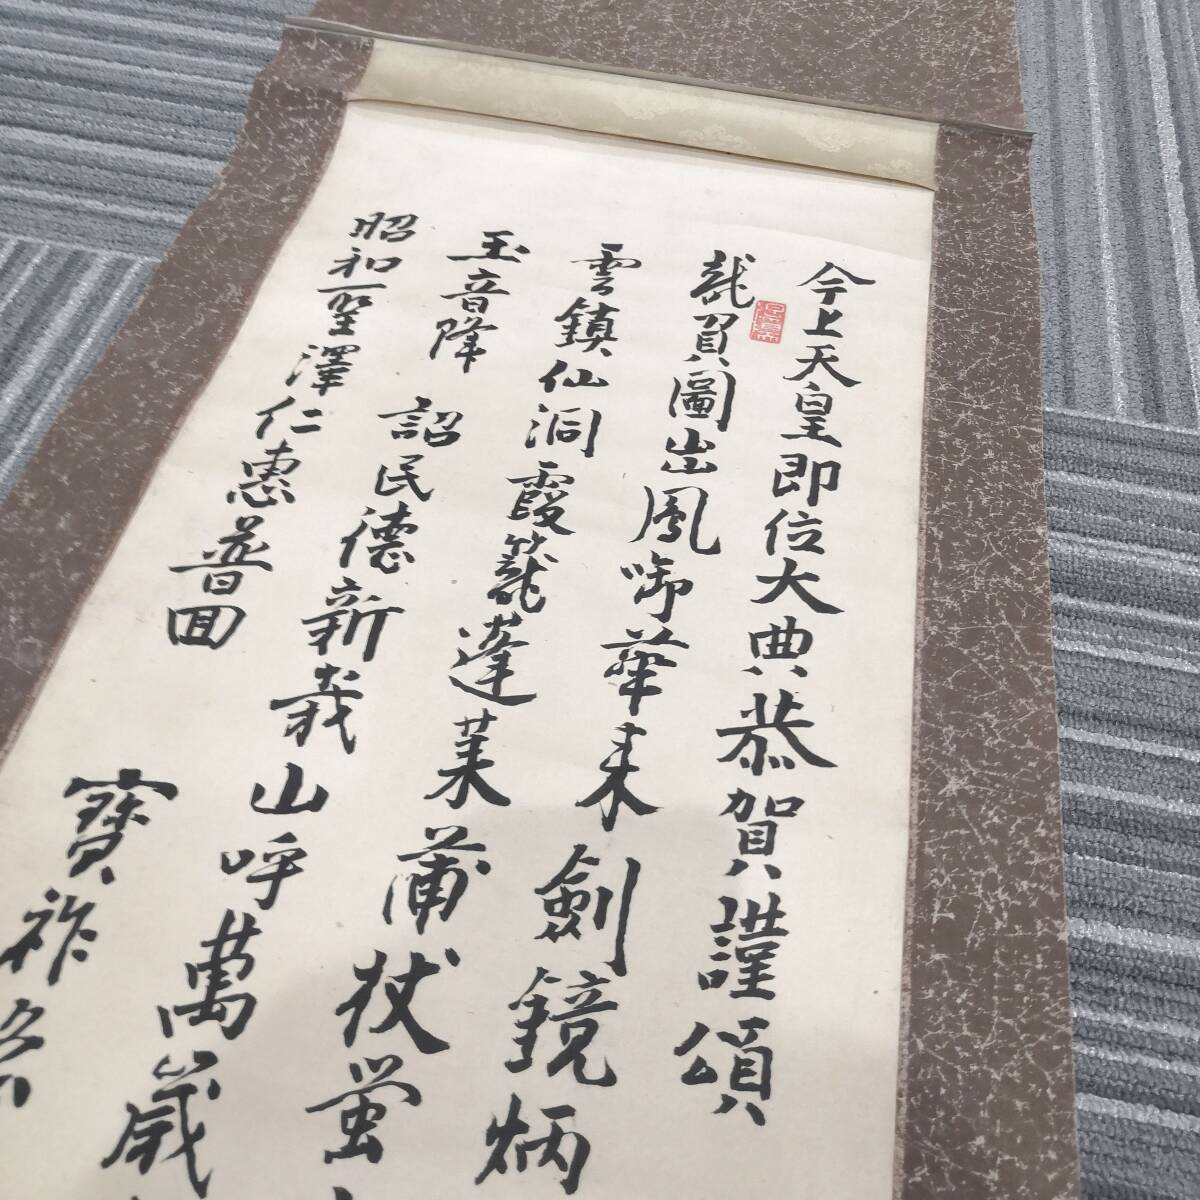 今上天皇即位大典恭賀謹頌
龍負圖出鳳啣華来劍鏡炳
雲鎮仙洞霞籠蓬莱蒲杖螢
玉音降 詔民德新哉山呼萬歳
昭和聖澤仁惠普回
寶祚